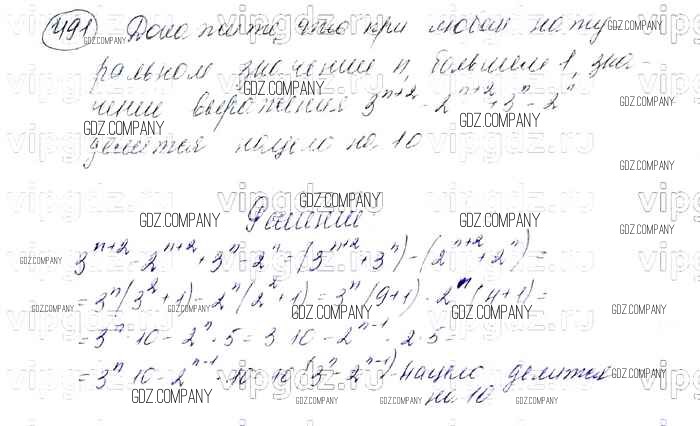 491 Докажите, что при любом нату
ральном значении n, большем 1, зна-
чение выражения 3^{n+2} - 2^{n+2} + 3^n - 2^n
делится нацело на 10
Решение
3^{n+2} - 2^{n+2} + 3^n - 2^n = (3^{n+2} + 3^n) - (2^{n+2} + 2^n) =
= 3^n(3^2 + 1) - 2^n(2^2 + 1) = 3^n(9+1) - 2^n(4+1) =
= 3^n · 10 - 2^n · 5 = 3 10 - 2^{n-1} · 2 · 5 =
= 3^n 10 - 2^{n-1} · 10 10 (3^n - 2^{n-1}) - нацело делится
на 10